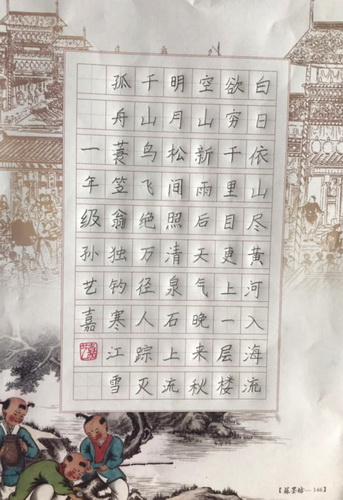 白日依山尽黄河入海流
欲穷千里目更上一层楼
空山新雨后天气晚来秋
明月松间照清泉石上流
千山鸟飞绝万径人踪灭
孤舟蓑笠翁独钓寒江雪
一年级孙艺嘉